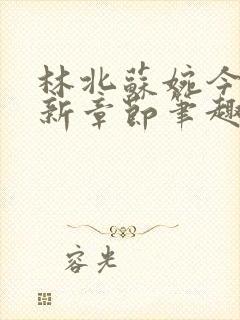 林北蘇婉今
新章節筆趣
容光